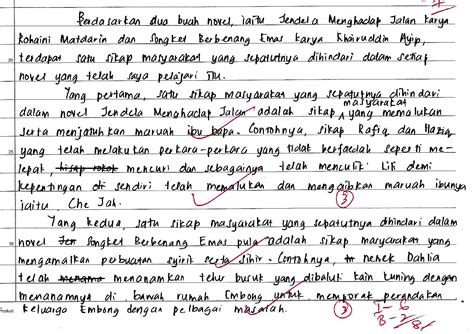 Berdasarkan dua buah novel, iaitu Jendela Menghadap Jalan karya
Rohaini Matdarin dan Songket Berbenang Emas karya Khairuddin Ayip,
terdapat satu sikap masyarakat yang sepatutnya dihindari dalam setiap
novel yang telah saya pelajari itu.
Yang pertama, satu sikap masyarakat yang sepatutnya dihindari
dalam novel Jendela Menghadap Jalan adalah sikap masyarakat yang memalukan
serta menjatuhkan maruah ibu bapa. Contohnya, sikap Rafiq dan
yang telah melakukan perkara-perkara yang tidak berfaedah seperti me-
lepak, hisap rokok mencuri dan sebagainya telah menculik Lili demi
kepentingan di sendiri telah memalukan dan mengaibkan maruah ibunya
iaitu Che Jah. 3
Yang kedua, satu sikap masyarakat yang sepatutnya dihindari dalam
novel Songket Berbenang Emas pula adalah sikap masyarakat yang
mengamalkan perbuatan syirik serta sihir. Contohnya, nenek Dahlia
telah menanamkan telur busuk yang dibaluti kain kuning dengan
menanamnya di bawah rumah Embong untuk memporak perandakan
keluarga Embong dengan pelbagai masalah. 3
I - 6
B - 2/8